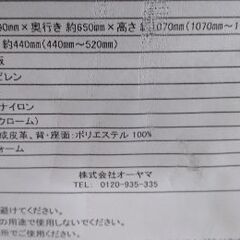 90mm×奥行き 約650mm×高さ 約1070mm(1070mm～1
約440mm(440mm～520mm)
板
ピレン
ナイロン
クローム)
成皮革、背・座面:ポリエステル 100%
ォーム
株式会社オーヤマ
TEL: 0120-935-335
避けてください。
の用途で使用しないでください。
所でご使用ください。